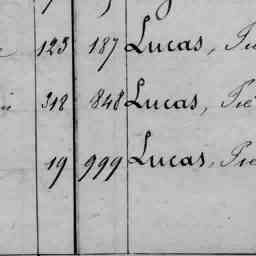 123 187 Lucas,
318 848 Lucas,
19 999 Lucas,